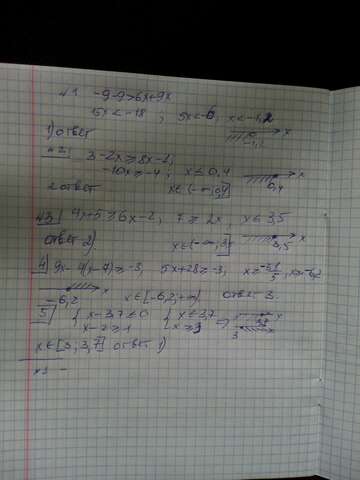 -9-9>6x+9x
15x<-18, 5x<-6, x<-1,2
1) ответ
3-2x≥8x-1,
-10x≥-4, x≤0,4
2 ответ x∈(-∞;0,4]
0,4
№3 4x+5≥6x-2, 7≥2x, x≤3,5
ответ 2) x∈(-∞;3,5]
3,5
4) 9x-4(x-7)≥-3, 5x+28≥-3, x≥-31/5, x≥-6,2
-6,2 x∈[-6,2;+∞) ответ 3.
5) { x-3,7≤0 { x≤3,7
x-2≥1 x≥3
3
x∈[3;3,7] ответ 1)